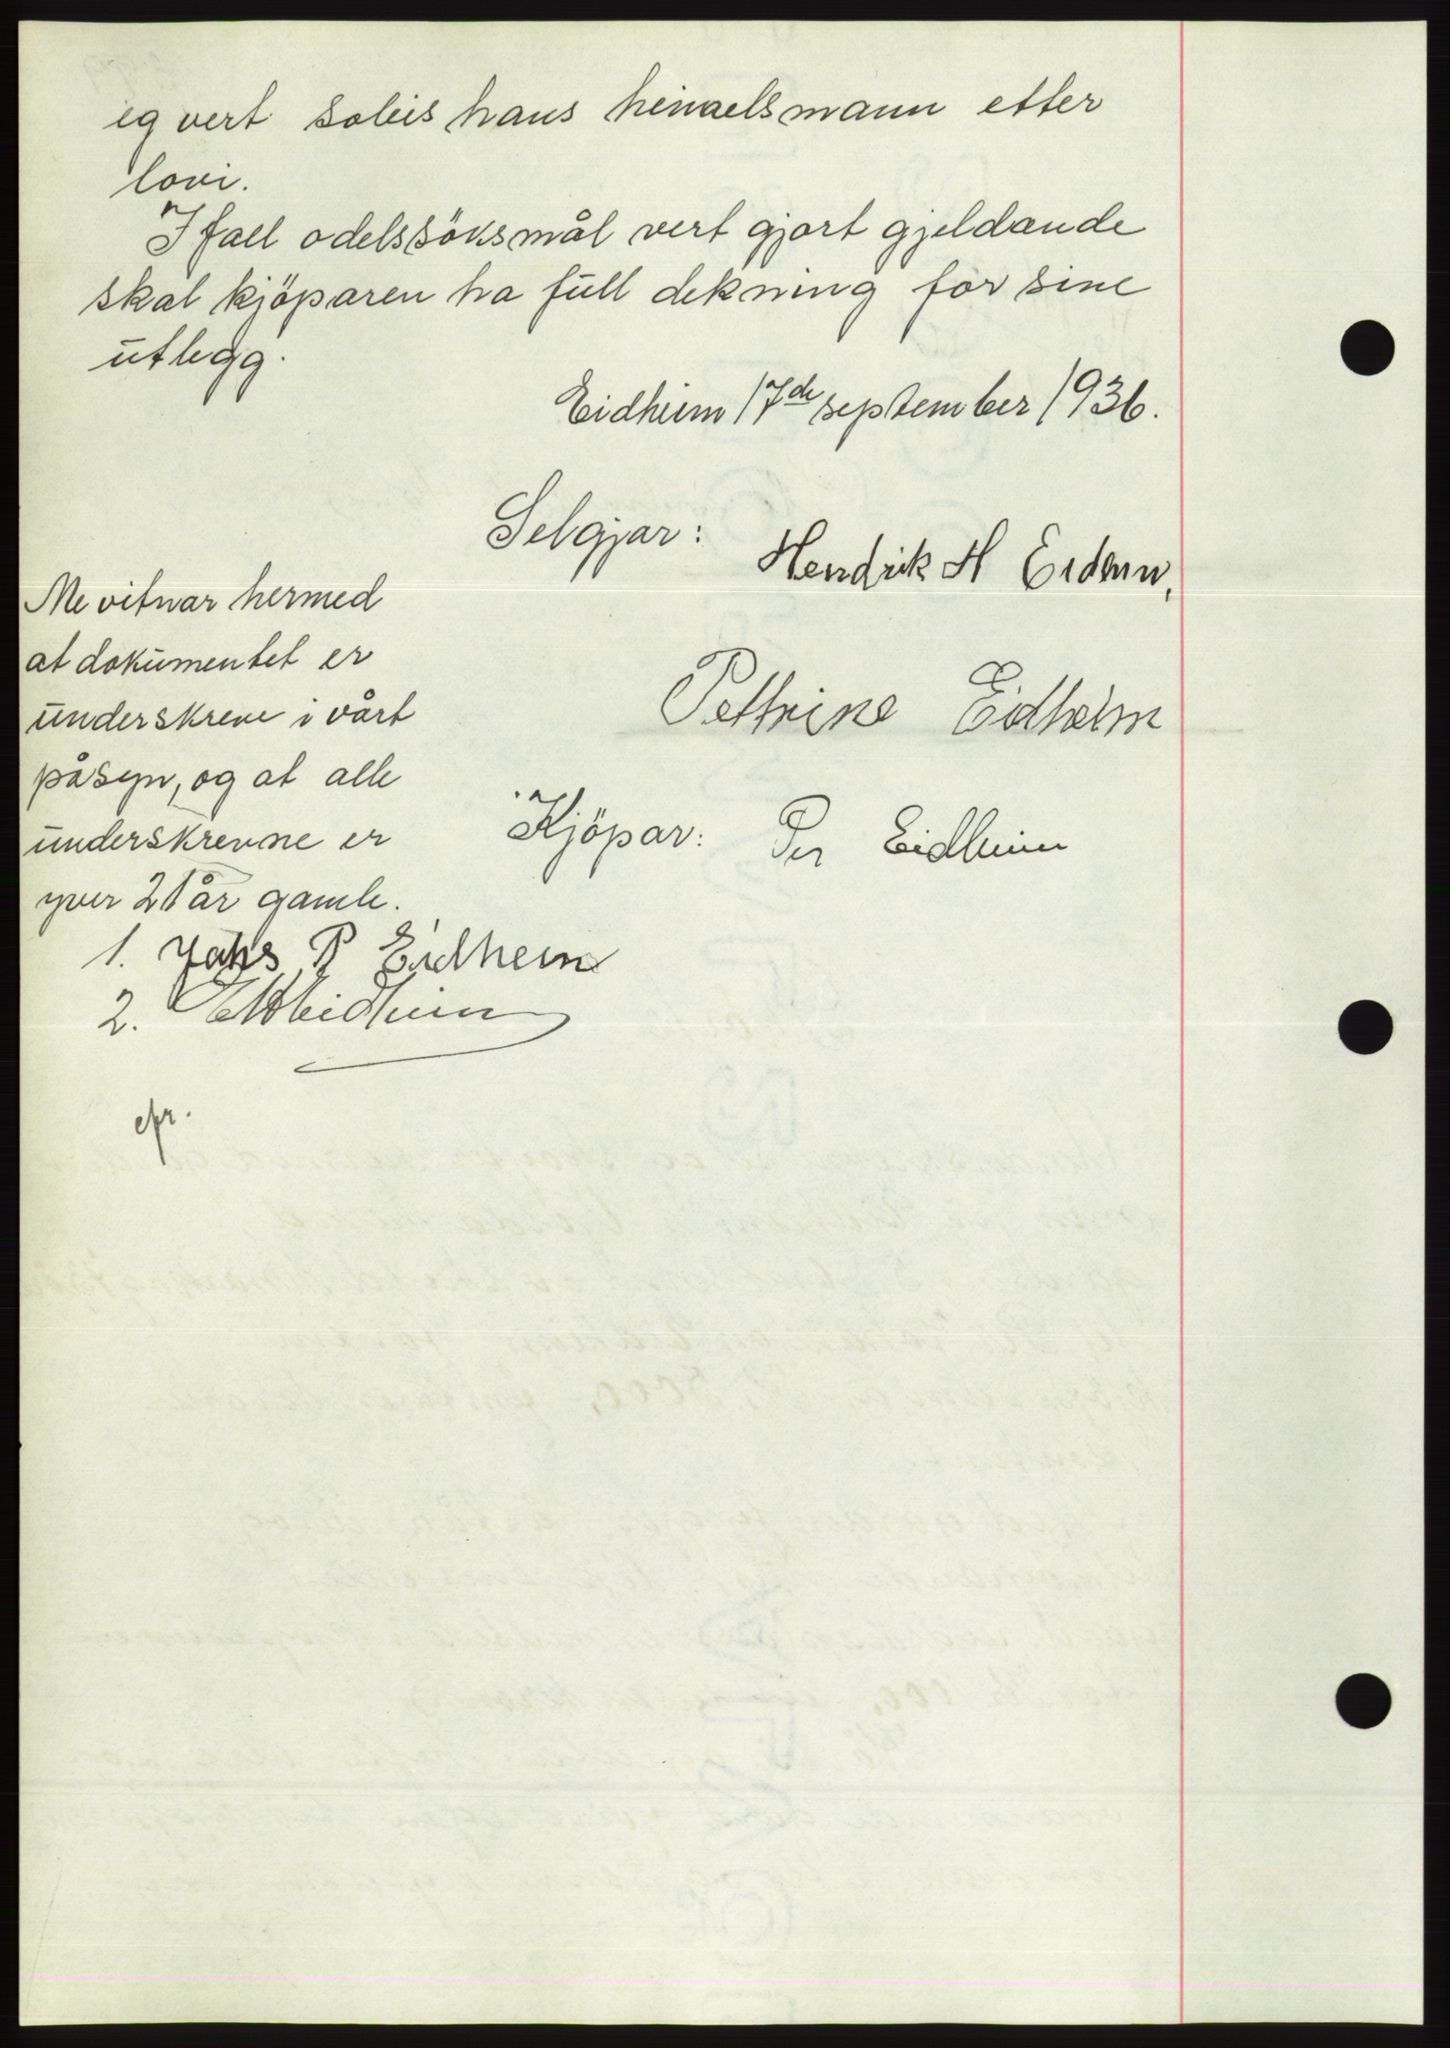 eg vert soleis hans heimelsmann etter
lovi.
I fall odelssöksmål vert gjort gjeldande
skal kjöparen ha full dekning for sine
utlegg.
Eidheim 17de september 1936.
Selgjar:
Hendrik H Eidem,
Me vitnar hermed
at dokumentet er
underskreve i vårt
påsyn, og at alle
underskrevne er
yver 21 år gamle.
Pettrine Eidheim
Kjöpar: Per Eidheim
1. P Eidheim
2.